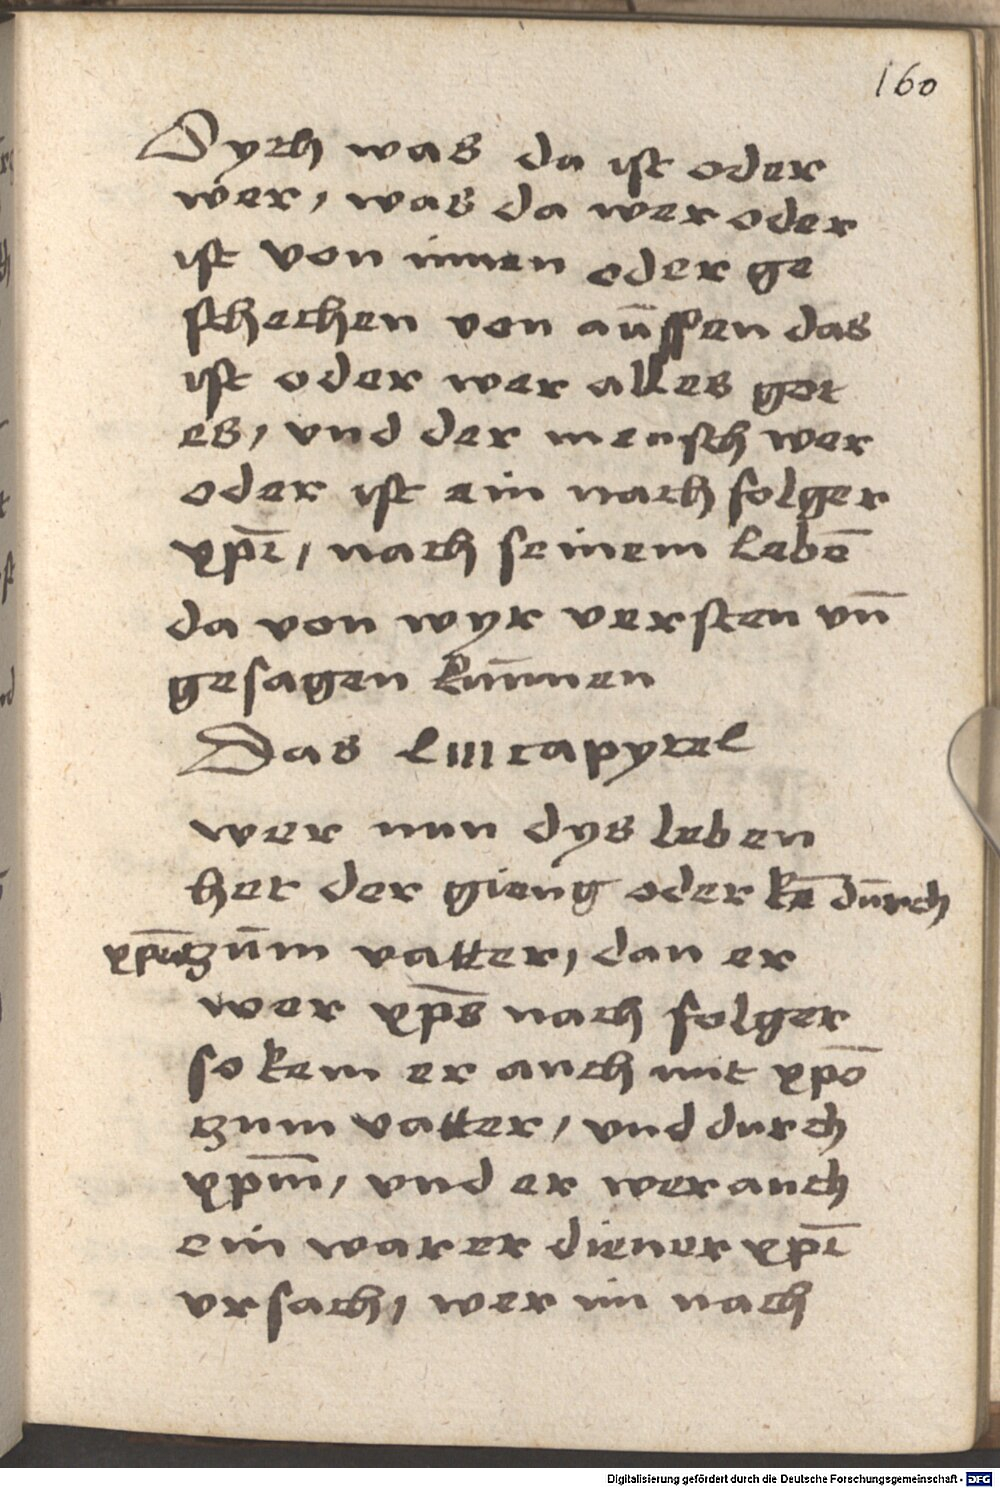 160
Sych was da ist oder
wer, was da wer oder
ist von innen oder ge
schechen von aūssen das
ist oder wer alles got
es, vnd der mensch wer
oder ist ein nach folger
xp̄i, nach seinem lebē
da von wyr versten vn̄
gesagen kūnnen
Das liii capytel
wer nun dys leben
het der gieng oder kē dūrch
xp̄m zūm vatter, dan er
wer xp̄s nach folger
so kem er auch mit xp̄o
zum vatter, vnd durch
xp̄m, vnd er wer auch
ein warer diener xp̄i
vrsach, wer im nach
Digitalisierung gefördert durch die Deutsche Forschungsgemeinschaft - DFG